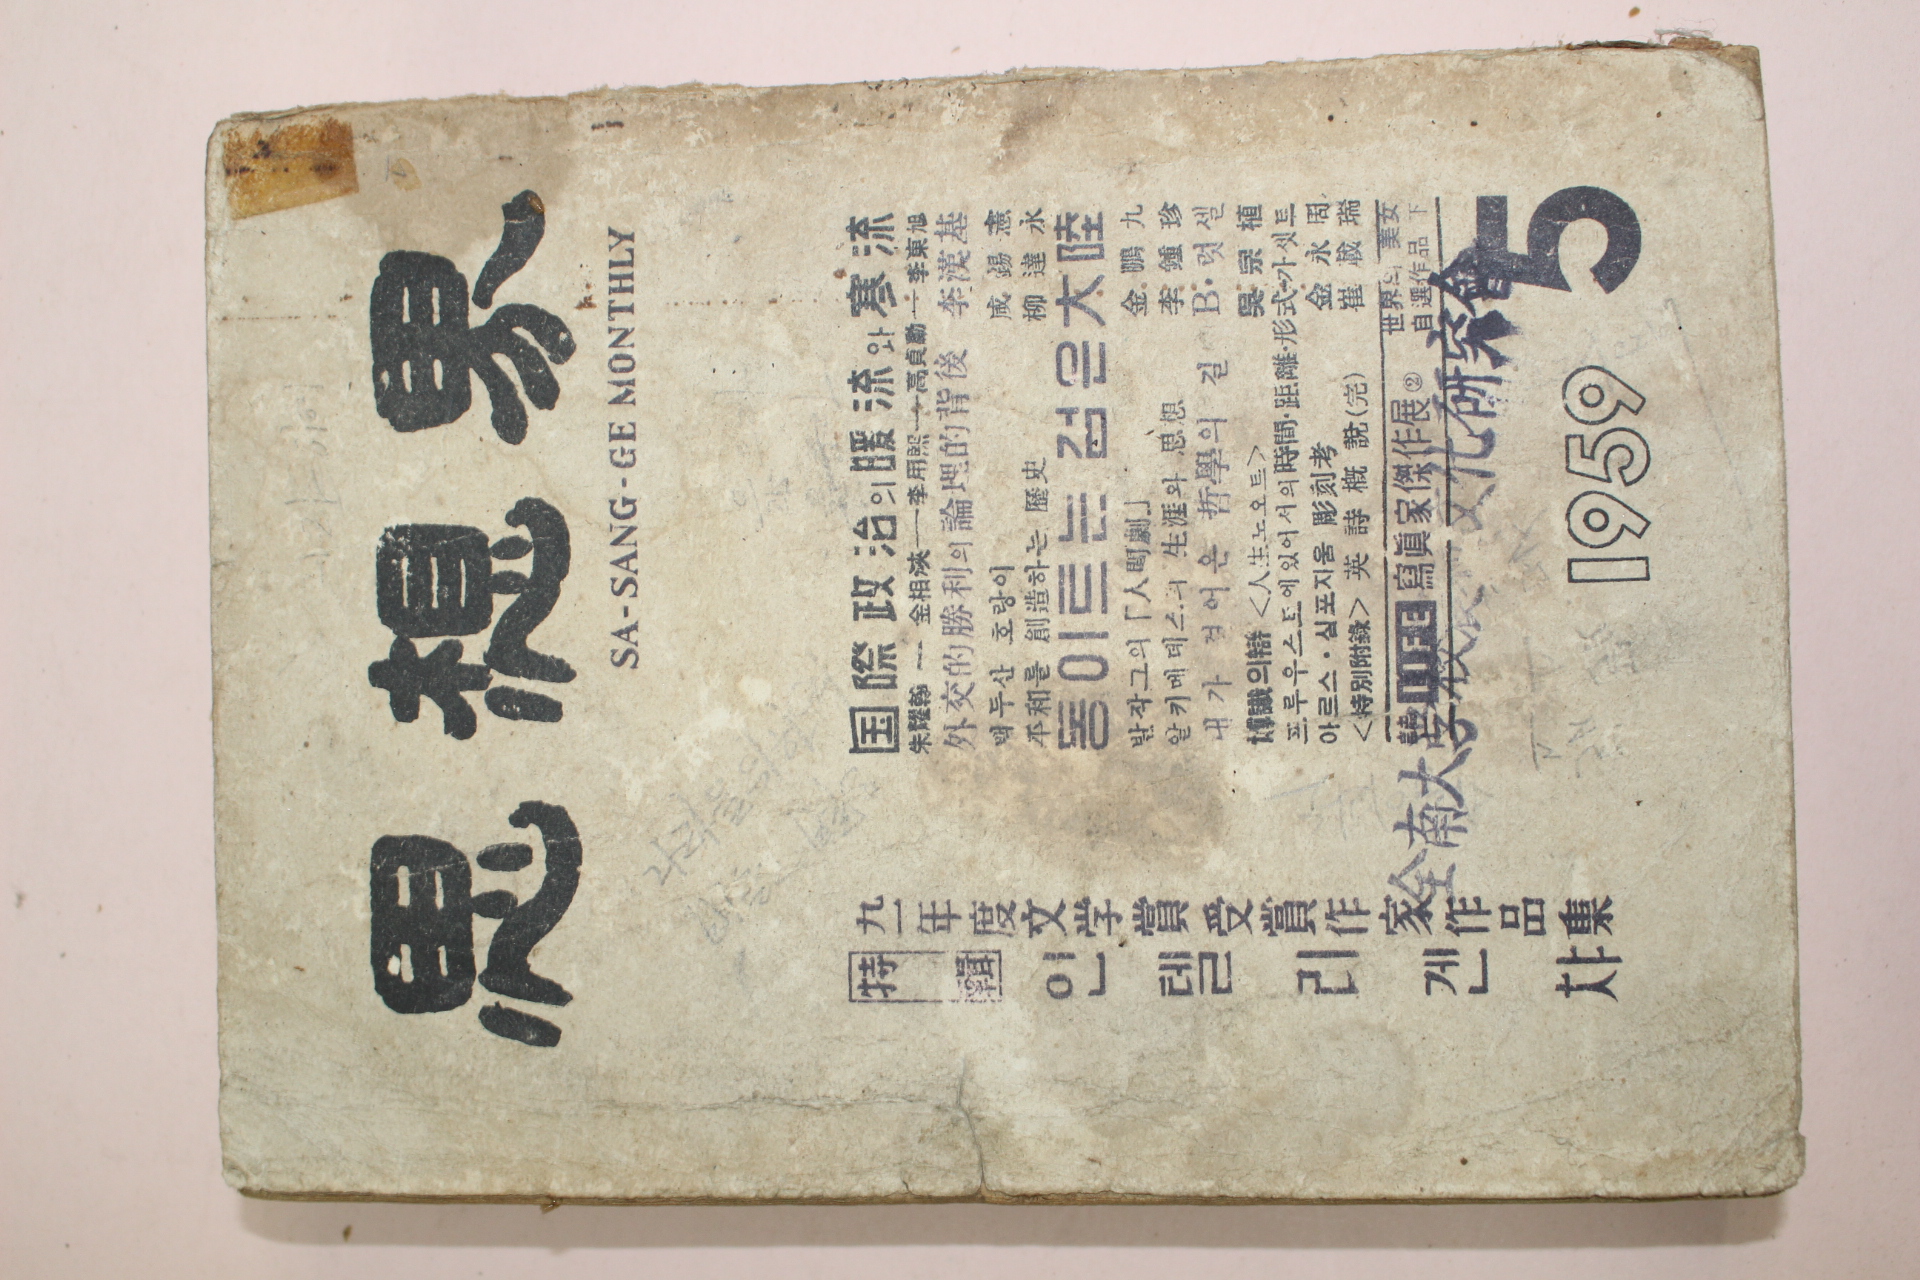 思想界
SA-SANG-GE MONTHLY
特輯 인텔리겐챠
九一年度文学賞受賞作家作品集
国際政治의 暖流와 寒流
朱耀翰 — 金相浹 — 李用熙 — 高貞勳 — 李東旭
外交的勝利의 論理的背後 李漢基
백두산 호랑이 咸錫憲
平和를 創造하는 歷史 柳達永
동이트는 검은太陸
발작그의「人間劇」 金鵬九
알키메데스의 生涯와 思想 李鍾珍
내가 걸어온 哲學의 길 B·럿셀
博識의辯 <人生노오트> 吳宗植
프루우스트에있어서의時間·距離·形式·가셋트
아르스·심포지움 彫刻考 金永周
<特別附錄> 英詩槪說(完) 崔載瑞
LIFE 寫眞家傑作展② 世界의 美女
自選作品 下
全南大学校 文化研究會
1959
5